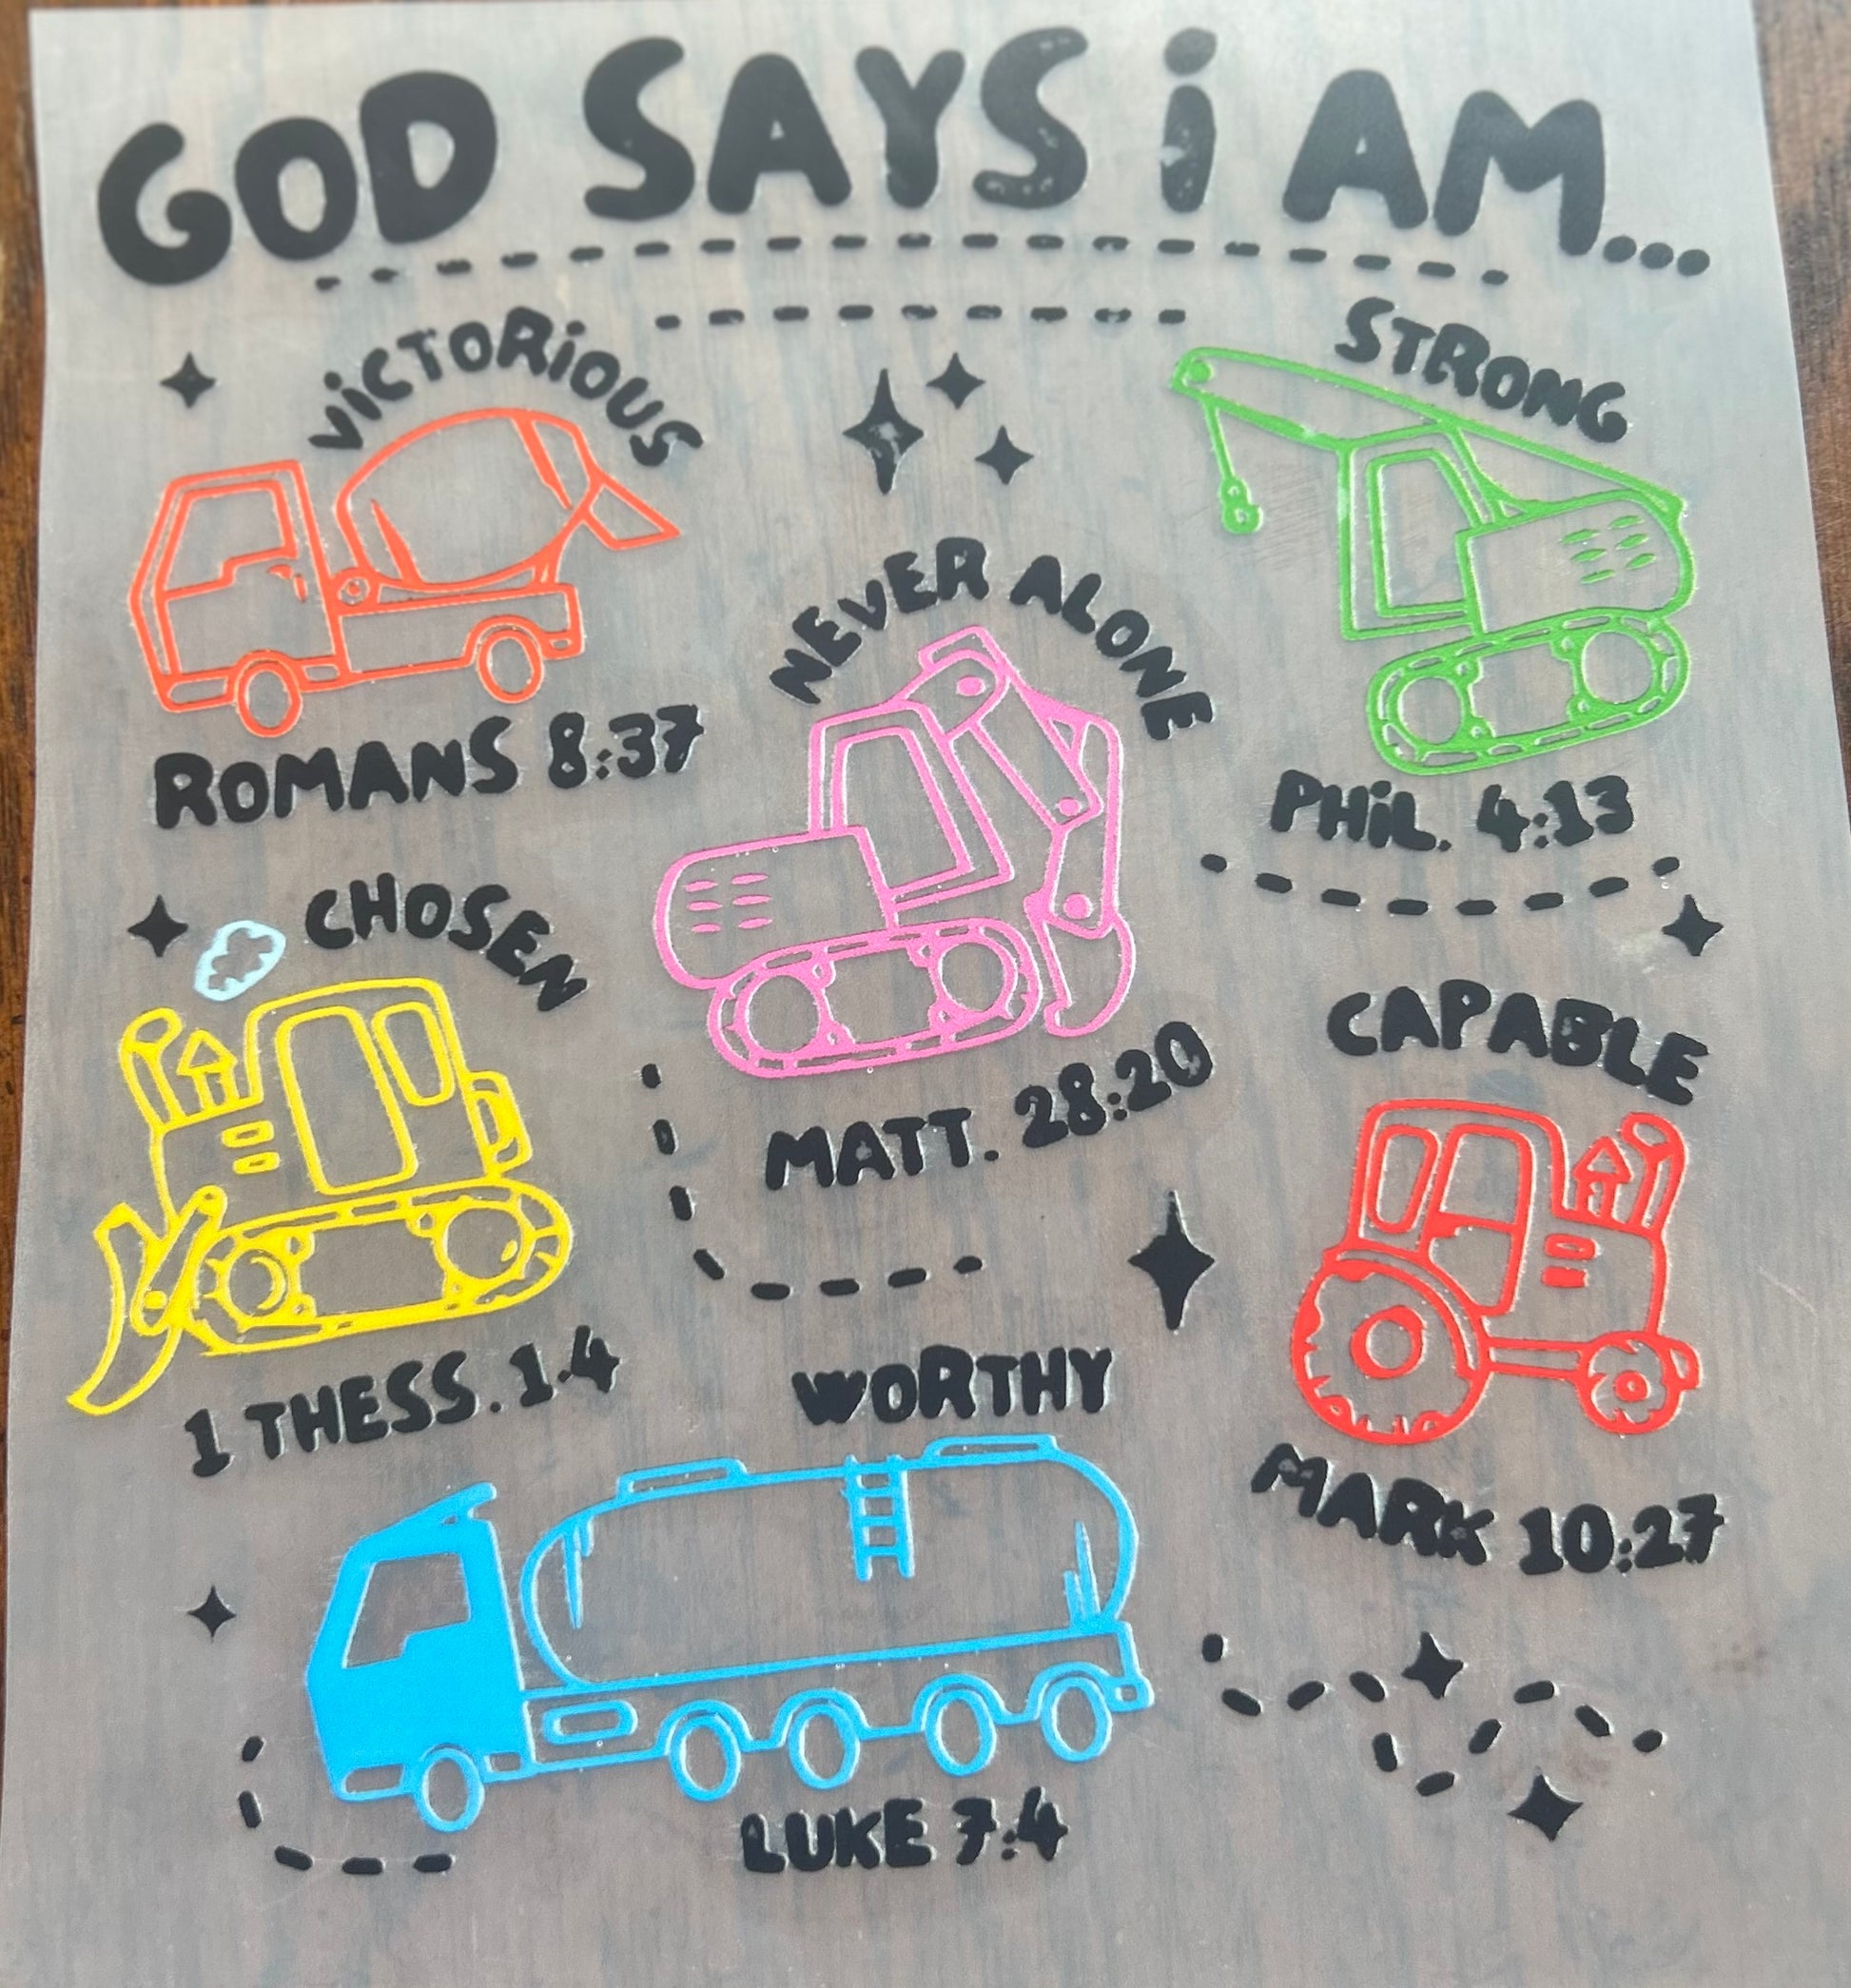 GOD SAYS i AM...
ViCTORiOUS
ROMANS 8:37
STRONG
PHiL. 4:13
NEVER ALONE
MATT. 28:20
CHOSEN
1 THESS. 1:4
CAPABLE
MARK 10:27
WORTHY
LUKE 7:4